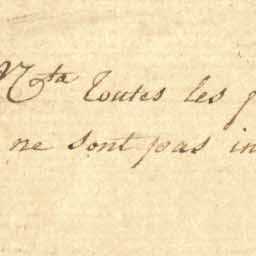 Nta toutes les
ne sont pas in